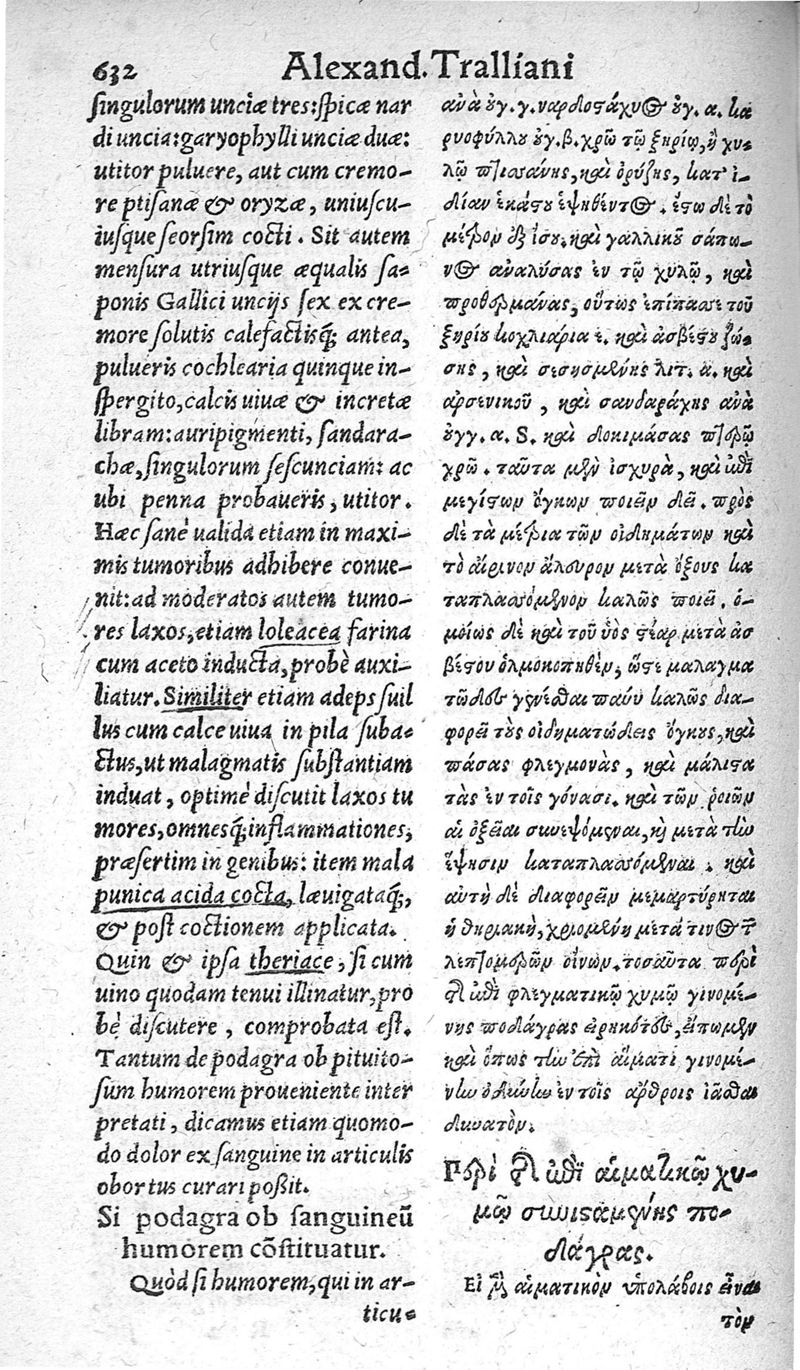 632 Alexand. Tralliani
ſingulorum unciæ tres: ſpicæ nar
di uncia: garyophylli unciæ duæ:
utitor puluere, aut cum cremo-
re ptiſanæ & oryzæ, uniuſcu-
iuſque ſeorſim cocti. Sit autem
menſura utriuſque æqualis ſa-
ponis Gallici uncijs ſex ex cre-
more ſolutis calefactisq́; antea,
pulueris cochlearia quinque in-
ſpergito, calcis uiuæ & incretæ
libram: auripigmenti, ſandara-
chæ, ſingulorum ſeſcunciam: ac
ubi penna probaueris, utitor.
Hæc ſanè ualida etiam in maxi-
mis tumoribus adhibere conue-
nit: ad moderatos autem tumo-
res laxos, etiam loleacea farina
cum aceto inducta, probè auxi-
liatur. Similiter etiam adeps ſuil
lus cum calce uiua in pila ſuba-
ctus, ut malagmatis ſubſtantiam
induat, optimè diſcutit laxos tu
mores, omnesq́; inflammationes,
præſertim in genibus: item mala
punica acida cocta, læuigataq́;,
& poſt coctionem applicata.
Quin & ipſa theriace, ſi cum
uino quodam tenui illinatur, pro
bè diſcutere, comprobata eſt.
Tantum de podagra ob pituito-
ſum humorem proueniente inter
pretati, dicamus etiam quomo-
do dolor ex ſanguine in articulis
obortus curari poßit.
Si podagra ob ſanguineū
humorem cōſtituatur.
Quòd ſi humorem, qui in ar-
ticu-
ἀνὰ ουγ. γ. ναρδοστάχυος ουγ. α. κα
ρυοφύλλου ουγ. β. χρῶ τῷ ξηρίῳ, ἢ χυ-
λῷ πτισάνης, καὶ ὀρύζης, κατ' ἰ-
δίαν ἑκάστου ἑψηθέντος. ἔστω δὲ τὸ
μέτρον ἐξ ἴσου. καὶ γαλλικοῦ σάπω-
νος ἀναλύσας ἐν τῷ χυλῷ, καὶ
προθερμάνας, οὕτως ἐπίπασσε τοῦ
ξηρίου κοχλιάρια ε. καὶ ἀσβέστου ζώ-
σης, καὶ σεσησμένης λιτ. α. καὶ
ἀρσενικοῦ, καὶ σανδαράχης ἀνὰ
ουγγ. α. S. καὶ δοκιμάσας πτερῷ
χρῶ. ταῦτα μὲν ἰσχυρὰ, καὶ ἐπὶ
μεγίστων ὄγκων ποιεῖν δεῖ. πρὸς
δὲ τὰ μέτρια τῶν οἰδημάτων καὶ
τὸ αἴρινον ἄλευρον μετὰ ὄξους κα
ταπλασσόμενον καλῶς ποιεῖ. ὁ-
μοίως δὲ καὶ τοῦ ὑὸς στέαρ μετὰ ἀσ
βέστου ὁλμοκοπηθὲν, ὥστε μάλαγμα
τῶδες γενέσθαι πάνυ καλῶς δια-
φορεῖ τοὺς οἰδηματώδεις ὄγκους, καὶ
πάσας φλεγμονὰς, καὶ μάλιστα
τὰς ἐν τοῖς γόνασι. καὶ τῶν ῥοιῶν
αἱ ὀξεῖαι συνεψόμεναι, καὶ μετὰ τὴν
ἕψησιν καταπλασσόμεναι. καὶ
αὐτὴ δὲ διαφορεῖν μεμαρτύρηται
ἡ θηριακὴ, χριομένη μετά τινος τῶν
λεπτομερῶν οἴνων. τοσαῦτα περὶ
τῆς ἐπὶ φλεγματικῷ χυμῷ γινομέ-
νης ποδάγρας εἰρηκότες, εἴπωμεν
καὶ ὅπως τὴν ἐπὶ αἵματι γινομέ-
νην ὀδύνην ἐν τοῖς ἄρθροις ἰᾶσθαι
δυνατόν.
Περὶ τῆς ἐπὶ αἱματικῷ χυ-
μῷ συνισταμένης πο-
δάγρας.
Εἰ δὲ αἱματικὸν ὑπολάβοις εἶναι
τὸν